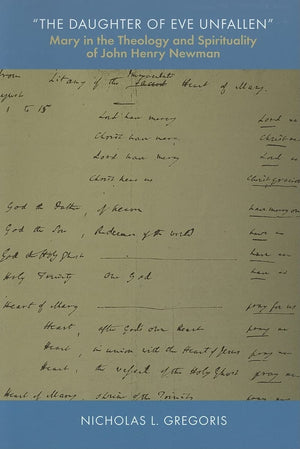 "THE DAUGHTER OF EVE UNFALLEN"
Mary in the Theology and Spirituality
of John Henry Newman
from Litany of the Immaculate Heart of Mary.
1 to 15
Lord have mercy Lord
Christ have mercy Christ
Lord have mercy Lord
Christ hear us Christ graciou
God the Father, of heaven have mercy on
God the Son, Redeemer of the world have
God the Holy Ghost have
Holy Trinity One God have
Heart of Mary pray for us
Heart, after God's own Heart pray
Heart, in union with the Heart of Jesus pray
Heart, the vessel of the Holy Ghost pray
Heart of Mary shrine of the Trinity pray
NICHOLAS L. GREGORIS